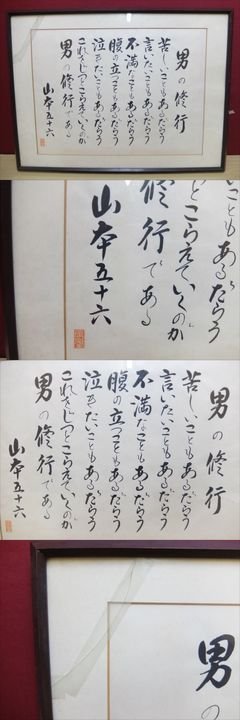 男の修行
苦しいこともあるだらう
言いたいこともあるだらう
不満なこともあるだらう
腹の立つこともあるだらう
泣きたいこともあるだらう
これをじつとこらえていくのが
男の修行である
山本五十六
とこらえていくのが
修行である
山本五十六
男の修行
苦しいこともあるだらう
言いたいこともあるだらう
不満なこともあるだらう
腹の立つこともあるだらう
泣きたいこともあるだらう
これをじつとこらえていくのが
男の修行である
山本五十六
男の